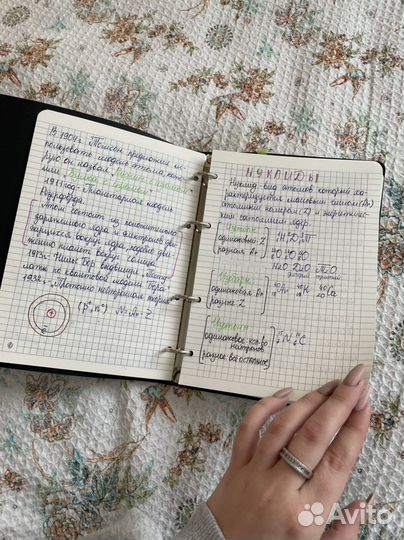 В 1904г. Томсон предложил ис-
пользовать модель атома, кото-
рую он назвал
1911 год - Планетарная модель
Резерфорда.
Атом состоит из положительно
заряженного ядра и электронов дви-
жущихся вокруг ядра, подобно дви-
жению планет вокруг солнца.
1913г. Нильс Бор
квантовой модели Бора.
1932г. Протонно-нейтронная теория
(p⁺, n⁰) N = Ar - Z
НУКЛИДЫ
Нуклид - вид атомов который ха-
рактеризуется массовым числом (Ar)
атомным номером (Z) и энергетичес-
ким состоянием ядра.
Изотопы
одинаковые: Z
разные: Ar
H₂O D₂O T₂O
Изобары
одинаковая: Ar
разные: Z
⁴⁰₁₈Ar ⁴⁰₁₉K ⁴⁰₂₀Ca
Изотоны
одинаковое: кол-во
нейтронов
разное: всё остальное
N C
Avito